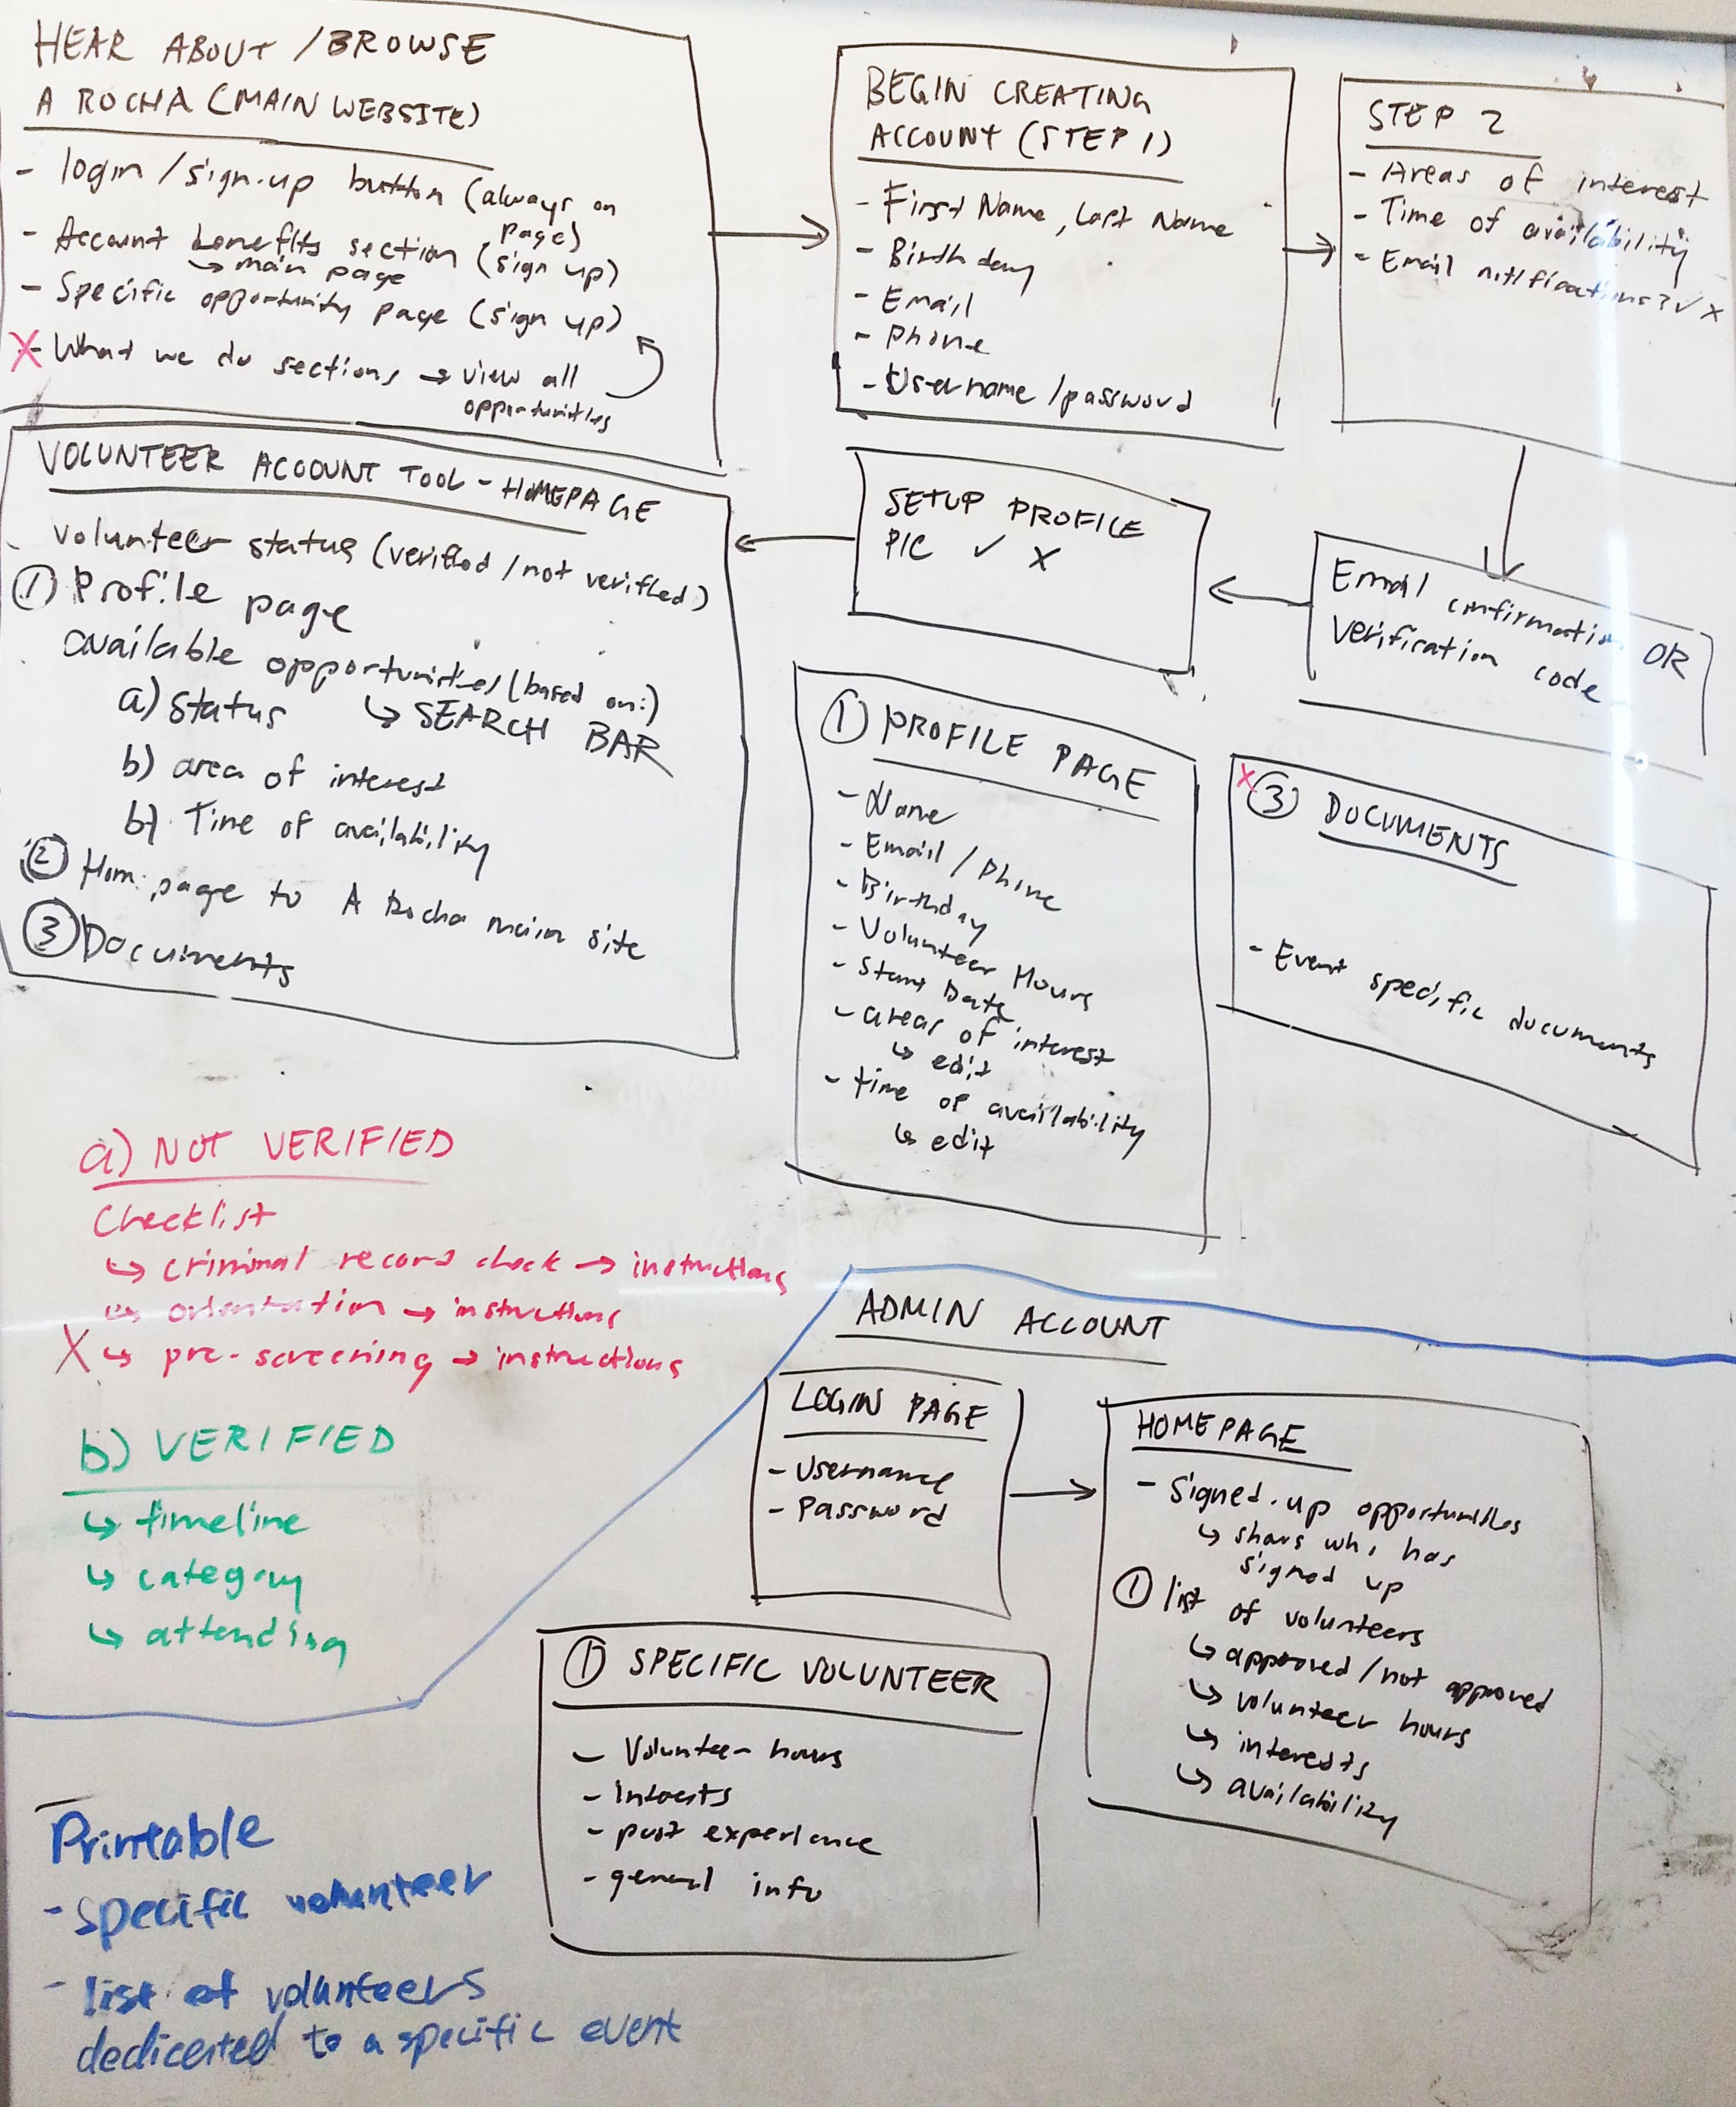 HEAR ABOUT / BROWSE
A ROCHA (MAIN WEBSITE)
- login / sign-up button (always on
page)
- Account benefits section (sign up)
↳ main page
- Specific opportunity page (sign up)
X - What we do sections → view all
opportunities
BEGIN CREATING
ACCOUNT (STEP 1)
- First Name, Last Name
- Birthday
- Email
- Phone
- Username / password
STEP 2
- Areas of interest
- Time of availability
- Email notifications? ✓ X
Email confirmation OR
verification code
SETUP PROFILE
PIC ✓ X
VOLUNTEER ACCOUNT TOOL - HOMEPAGE
- volunteer status (verified / not verified)
① Profile page
available opportunities (based on:)
a) status ↳ SEARCH BAR
b) area of interest
b) Time of availability
② Home page to A Rocha main site
③ Documents
① PROFILE PAGE
- Name
- Email / Phone
- Birthday
- Volunteer Hours
- Start Date
- areas of interest
↳ edit
- time of availability
↳ edit
X ③ DOCUMENTS
- Event specific documents
a) NOT VERIFIED
Checklist
↳ criminal record check → instructions
↳ orientation → instructions
X ↳ pre-screening → instructions
b) VERIFIED
↳ timeline
↳ category
↳ attending
ADMIN ACCOUNT
LOGIN PAGE
- Username
- Password
HOMEPAGE
- Signed-up opportunities
↳ shows who has
signed up
① list of volunteers
↳ approved / not approved
↳ volunteer hours
↳ interests
↳ availability
① SPECIFIC VOLUNTEER
- Volunteer hours
- Interests
- past experience
- general info
Printable
- specific volunteer
- list of volunteers
dedicated to a specific event